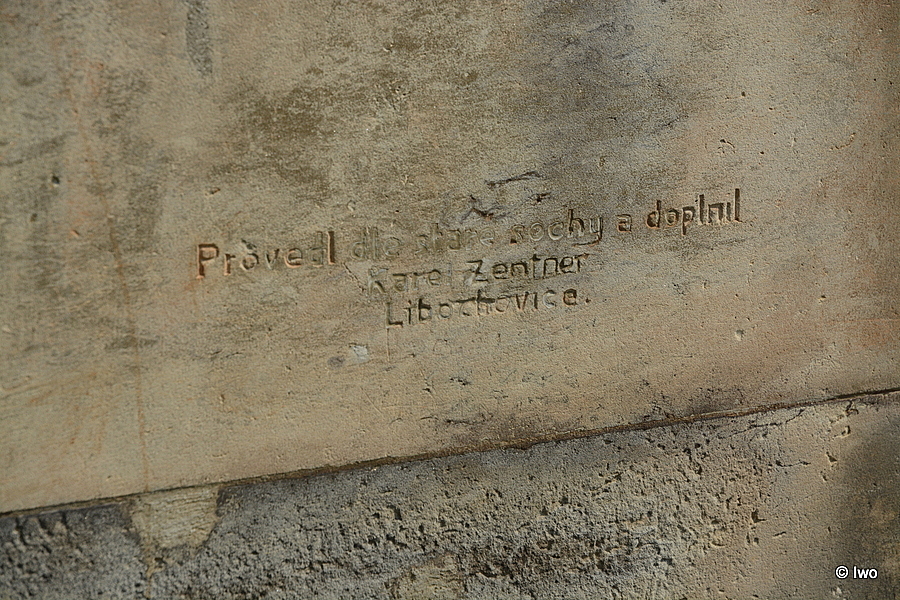 Provedl dle staré sochy a doplnil
Karel Zentner
Libochovice.
© Iwo